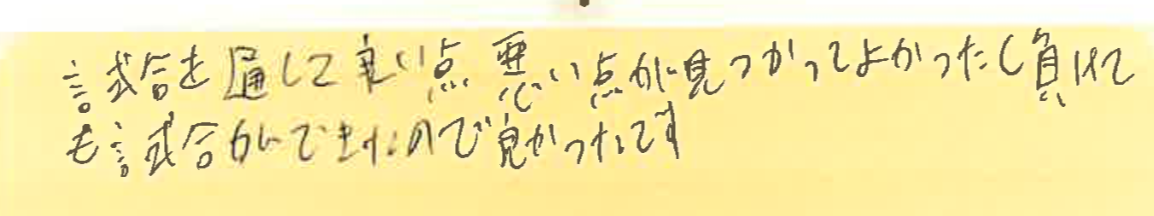 試合を通して良い点悪い点が見つかってよかったし負けて
も試合ができたので良かったです